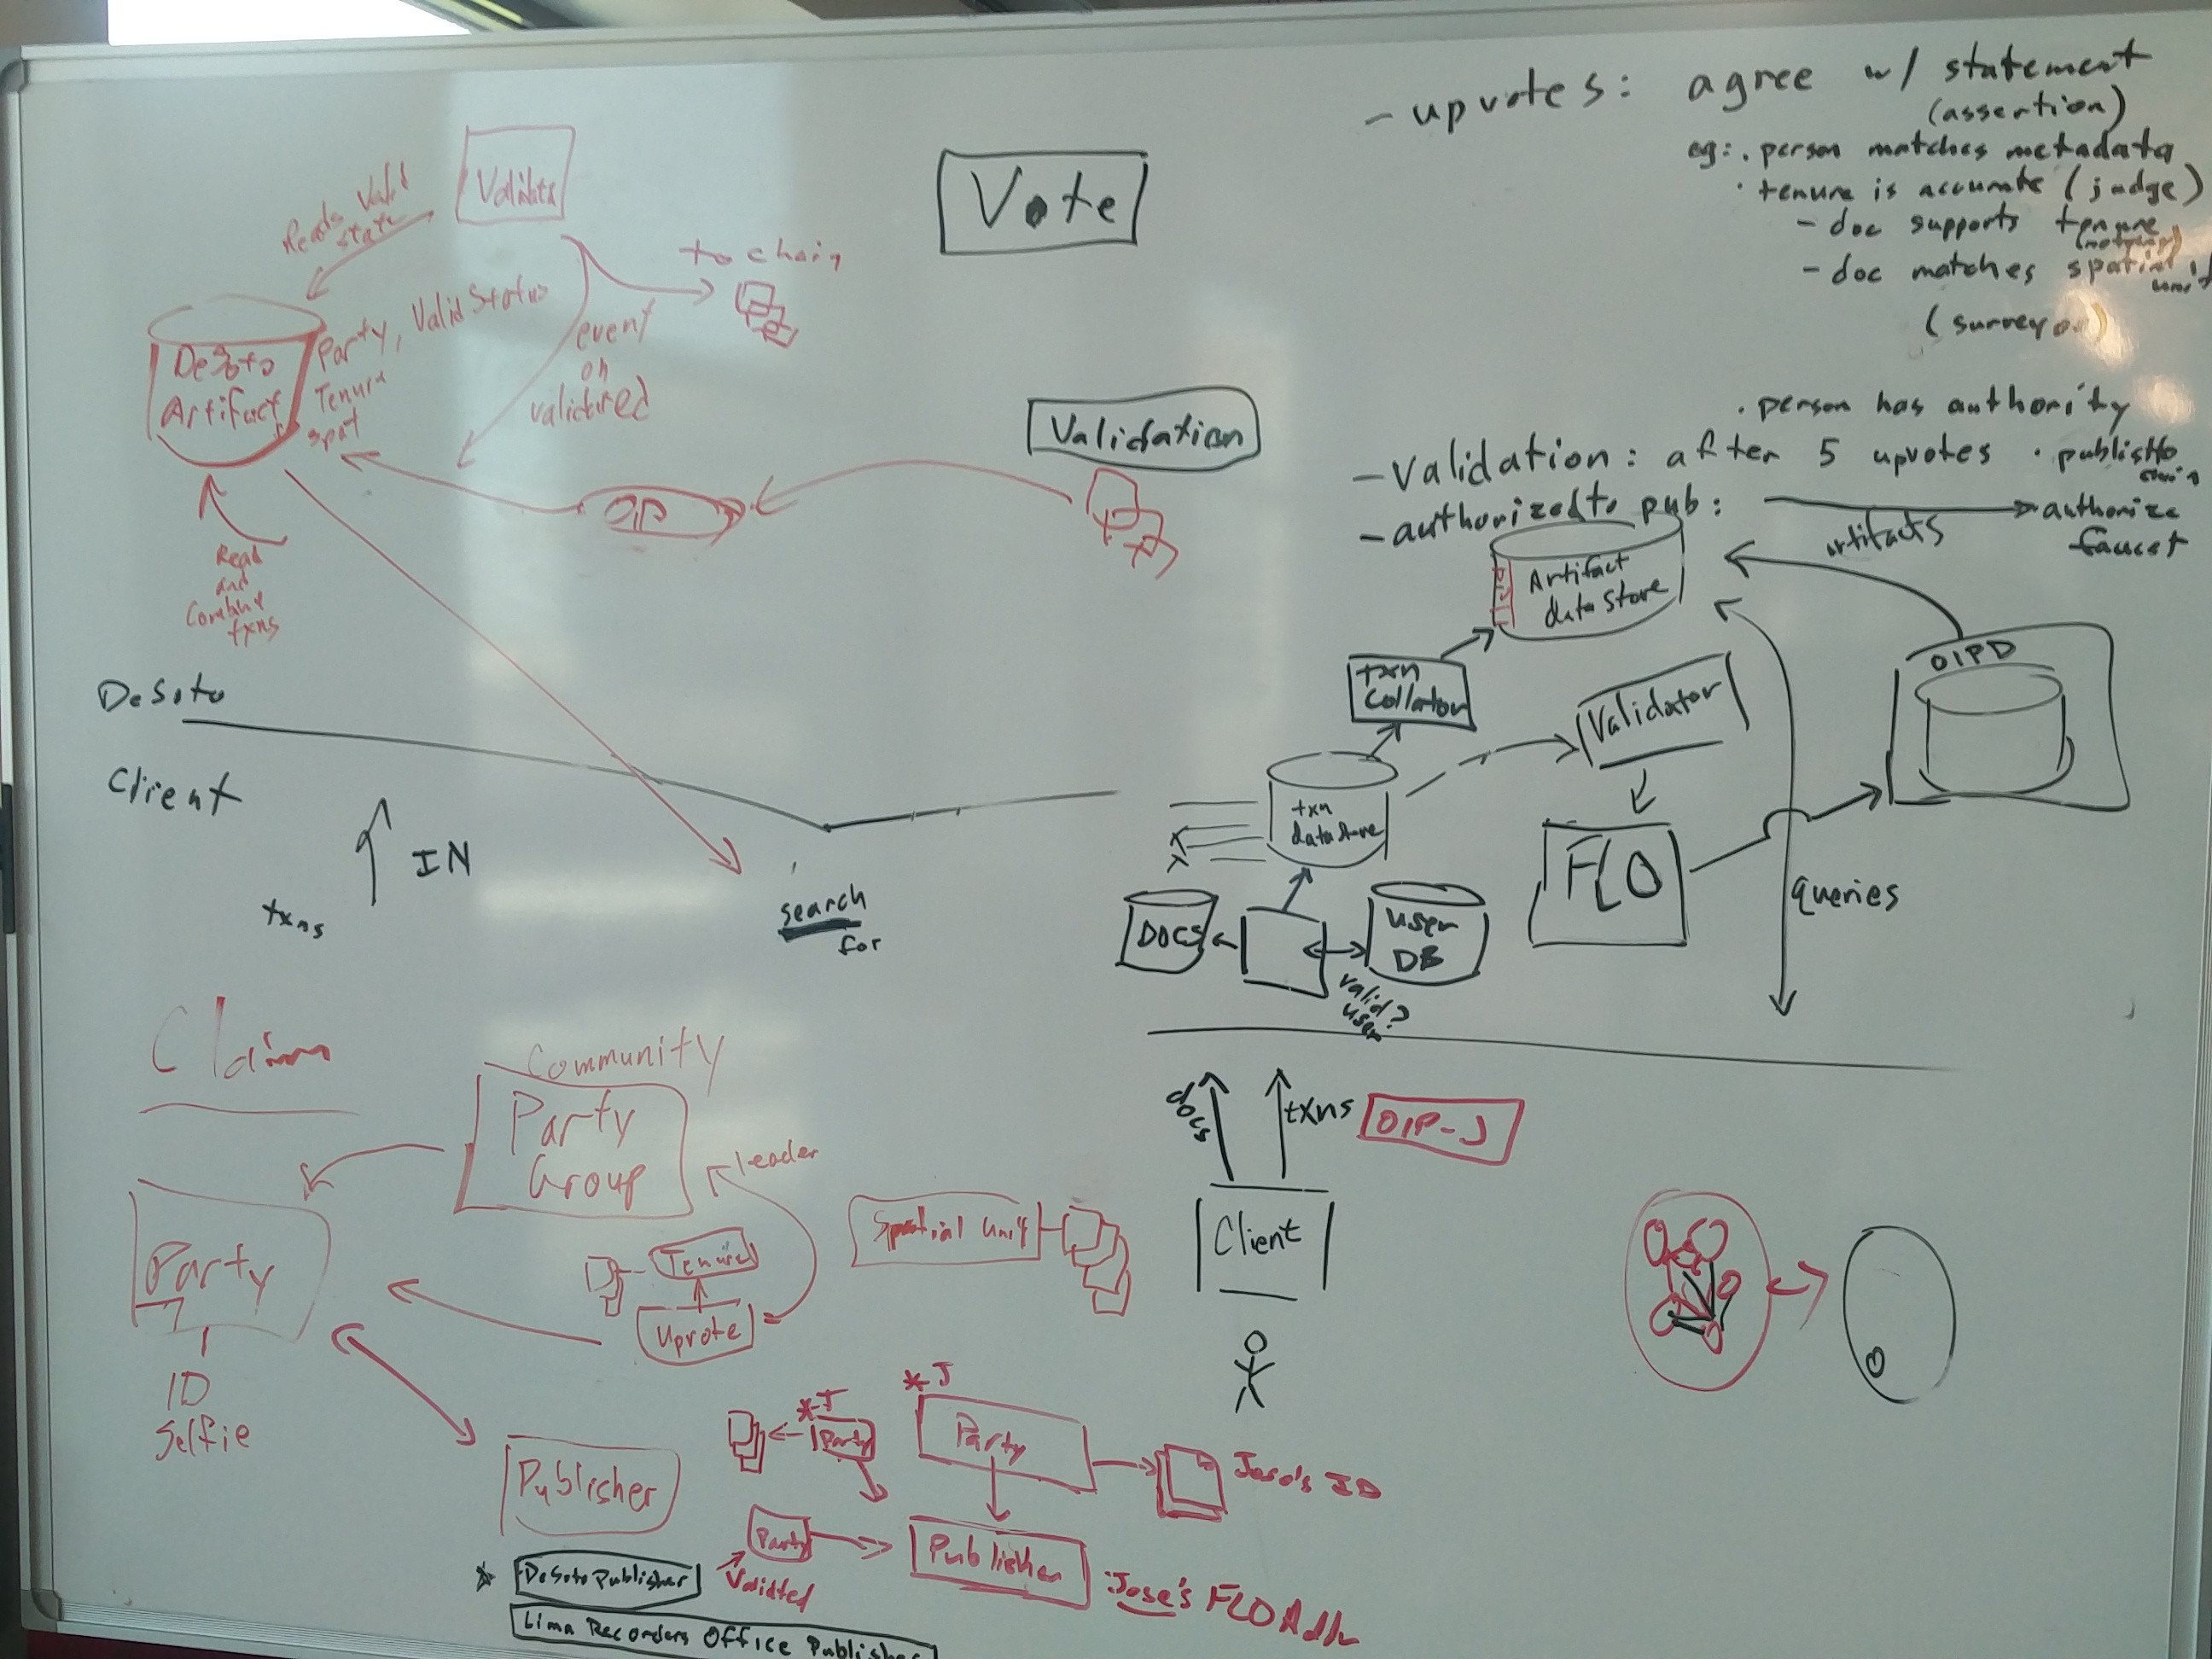 - upvotes: agree w/ statement
(assertion)
eg: . person matches metadata
. tenure is accurate (judge)
- doc supports tenure
(notary)
- doc matches spatial
unit
(surveyor)
Vote
Validation
. person has authority
- Validation: after 5 upvotes . publish to
chain
- authorized to pub:
authorize
faucet
artifacts
Artifact
data store
OIPD
txn
Collator
Validator
txn
data store
FLO
queries
DOCS
user
DB
valid?
user
docs
txns
OIP-J
Client
Reads Valid
state
to chain
Party, Valid Status
Tenure
spat
event
on
DeSoto
Artifact
OIP
Read
and
txns
DeSoto
Client
IN
txns
search
for
Claim
Community
Party
Group
leader
Party
ID
Selfie
Upvote
Spatial Unit
Publisher
*-J
Party
*-J
Party
Jose's ID
Party
Publisher
: Jose's FLO
* DeSoto Publisher
Lima Recorders Office Publisher